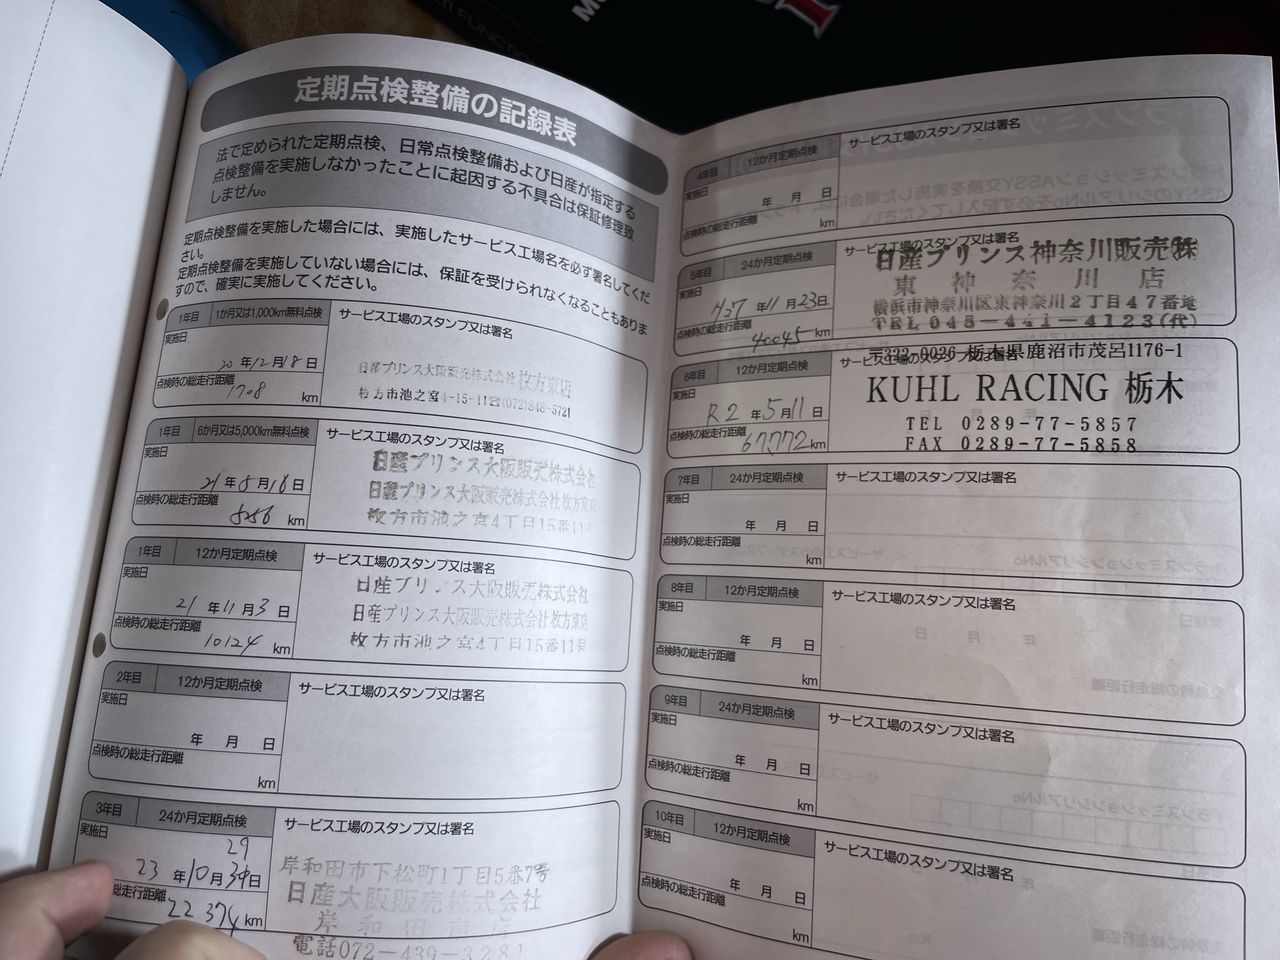 定期点検整備の記録表
法で定められた定期点検、日常点検整備および日産が指定する
点検整備を実施しなかったことに起因する不具合は保証修理致
しません。
定期点検整備を実施した場合には、実施したサービス工場名を必ず署名してくだ
さい。
定期点検整備を実施していない場合には、保証を受けられなくなることもありま
すので、確実に実施してください。
1年目 1か月又は1,000km無料点検 サービス工場のスタンプ又は署名
実施日
20年12月18日
点検時の総走行距離
1708 km
日産プリンス大阪販売株式会社 枚方東店
枚方市池之宮4-15-11☎(072)848-5721
1年目 6か月又は5,000km無料点検 サービス工場のスタンプ又は署名
実施日
21年5月18日
点検時の総走行距離
5256 km
日産プリンス大阪販売株式会社
日産プリンス大阪販売株式会社枚方東店
枚方市池之宮4丁目15番11号
1年目 12か月定期点検 サービス工場のスタンプ又は署名
実施日
21年11月3日
点検時の総走行距離
10124 km
日産プリンス大阪販売株式会社
日産プリンス大阪販売株式会社枚方東店
枚方市池之宮4丁目15番11号
2年目 12か月定期点検 サービス工場のスタンプ又は署名
実施日
年 月 日
点検時の総走行距離
km
3年目 24か月定期点検 サービス工場のスタンプ又は署名
実施日
29
23年10月 日
総走行距離
22374 km
岸和田市下松町1丁目5番7号
日産大阪販売株式会社
岸和田 店
電話072-439-3281
4年目 12か月定期点検 サービス工場のスタンプ又は署名
実施日
年 月 日
点検時の総走行距離
km
5年目 24か月定期点検 サービス工場のスタンプ又は署名
実施日
H27年11月23日
点検時の総走行距離
40045 km
日産プリンス神奈川販売㈱
東神奈川店
横浜市神奈川区東神奈川2丁目47番地
TEL 045-441-4123(代)
6年目 12か月定期点検
実施日
R2年5月11日
点検時の総走行距離
67,772km
〒322-0026 栃木県鹿沼市茂呂1176-1
KUHL RACING 栃木
TEL 0289-77-5857
FAX 0289-77-5858
7年目 24か月定期点検 サービス工場のスタンプ又は署名
実施日
年 月 日
点検時の総走行距離
km
8年目 12か月定期点検 サービス工場のスタンプ又は署名
実施日
年 月 日
点検時の総走行距離
km
9年目 24か月定期点検 サービス工場のスタンプ又は署名
実施日
年 月 日
点検時の総走行距離
km
10年目 12か月定期点検 サービス工場のスタンプ又は署名
実施日
年 月 日
点検時の総走行距離
km